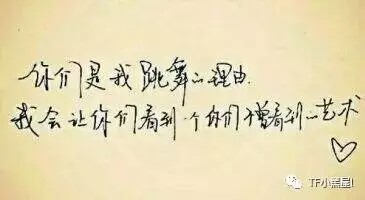 你们是我跳舞的理由.
我会让你们看到一个你们憎看到的艺术
TF小黑屋L